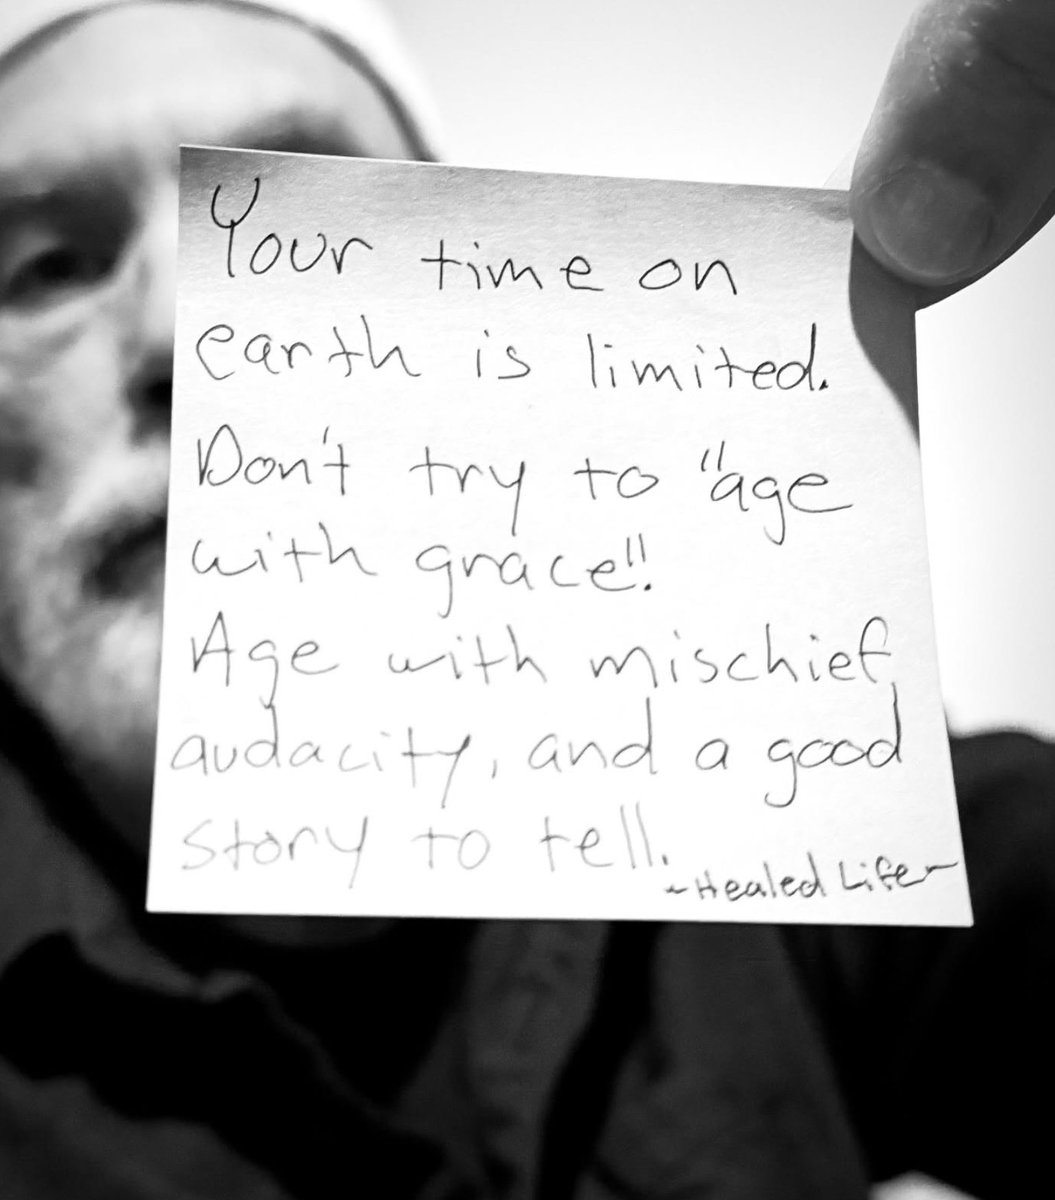 Your time on
earth is limited.
Don't try to "age
with grace"!
Age with mischief,
audacity, and a good
story to tell.
~Healed Life~